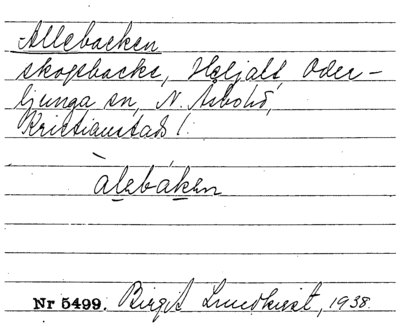 Allebacken
skogsbacke, Häljalt, Oder-
ljunga sn, N. Åsbo hd,
Kristianstads l.
àlebáken
Nr 5499. Birgit Lundkvist, 1938.